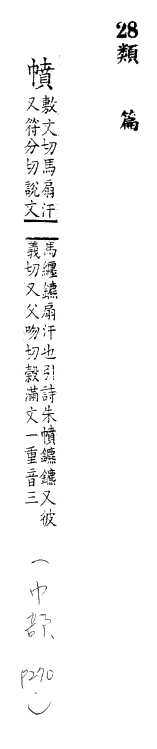 28類 篇
幩
敷文切馬扇汗
又符分切說文
馬纏鑣扇汗也引詩朱幩鑣鑣又彼
義切又父吻切穀滿文一重音三
(巾部 P270)